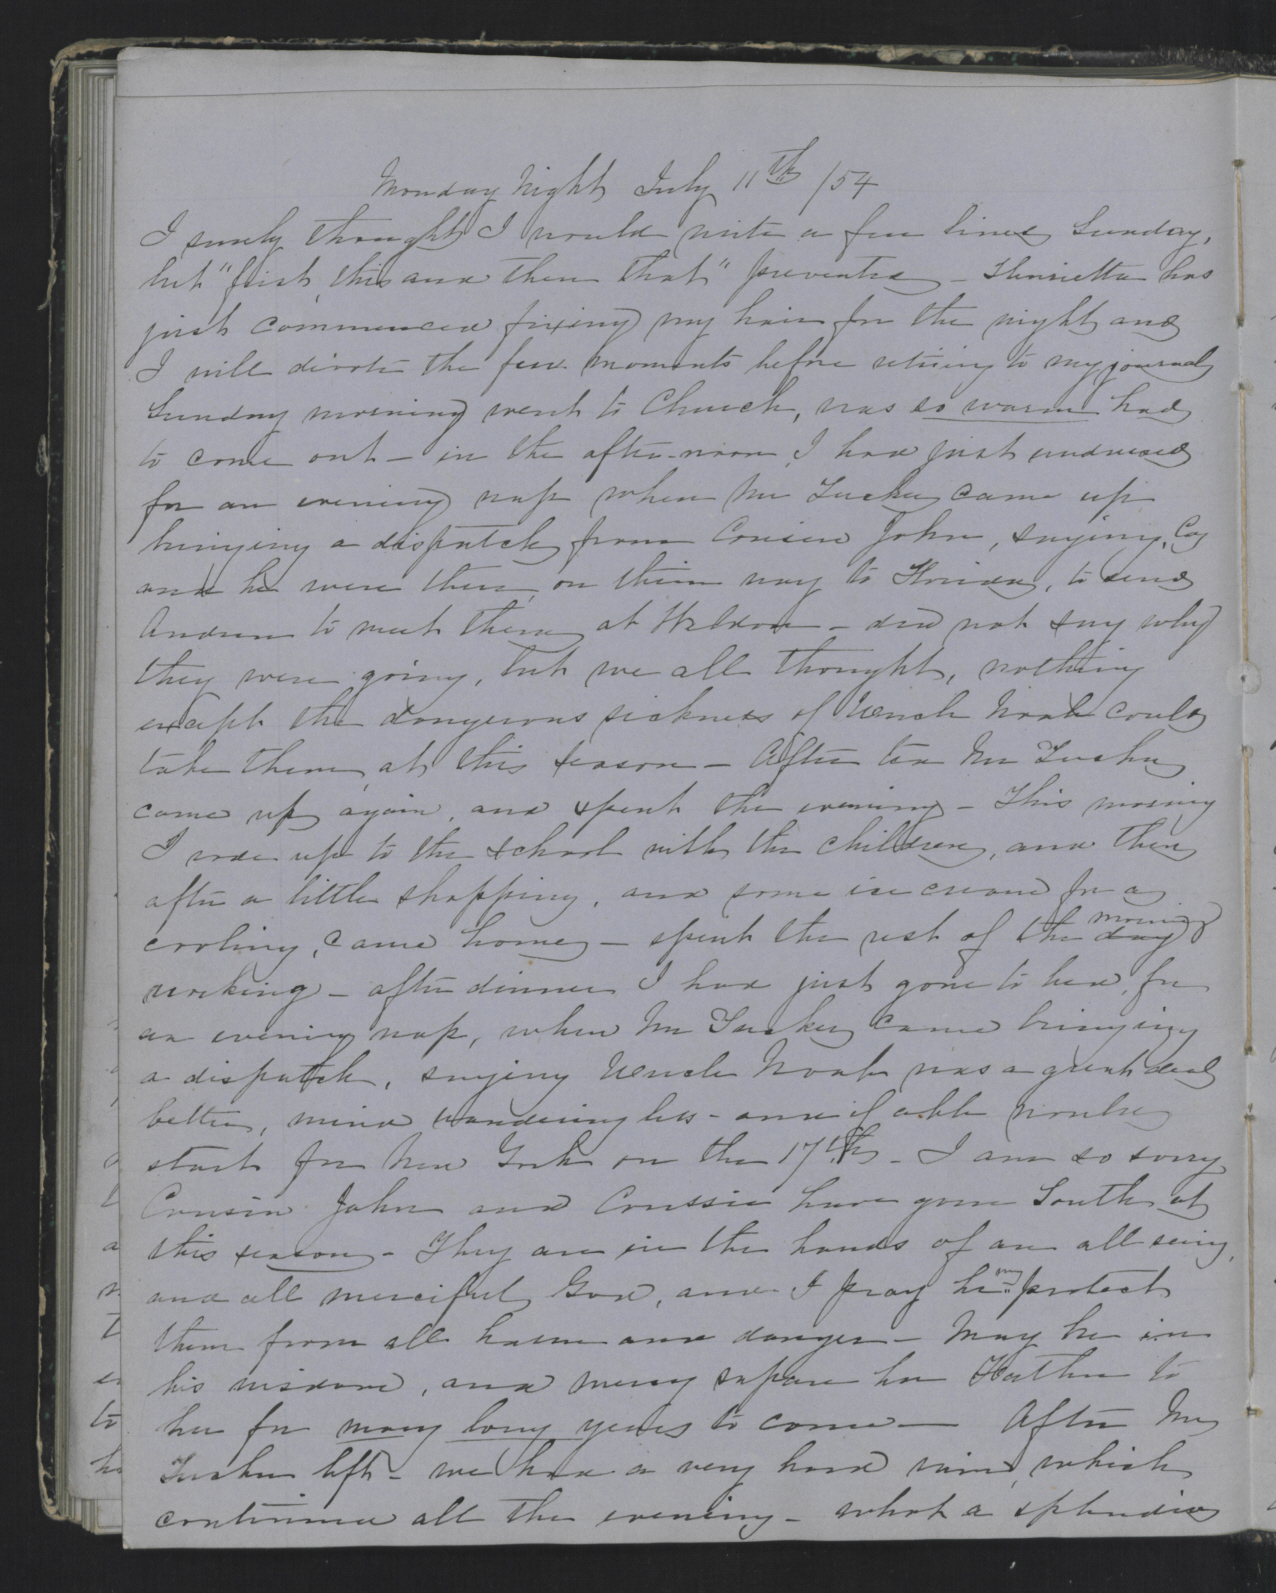 Monday Night July 11th /54
I surely thought I would write a few lines Sunday,
but "first this and then that" prevented - Henrietta has
just commenced fixing my hair for the night and
I will devote the few moments before retiring to my journal
Sunday morning went to Church, was so warm had
to come out - in the after-noon, I had just undressed
for an evening nap when Mr Tucker came up
bringing a dispatch from Cousin John, saying,
and he were there, on their way to Florida, to send
Andrew to meet them at Weldon - did not say why
they were going, but we all thought, nothing
except the dangerous sickness of Uncle Noah could
take them at this season - After tea Mr Tucker
came up again, and spent the evening - This morning
I rode up to the school with the children, and then
after a little shopping, and some ice cream for a
cooling, came home - spent the rest of the day morning
working - after dinner I had just gone to bed, for
an evening nap, when Mr Tucker came bringing
a dispatch, saying Uncle Noah was a great deal
better, mind wandering less - and if able would
start for New York on the 17th - I am so sorry
Cousin John and Coussie have gone South at
this season - They are in the hands of an all seeing,
and all merciful God, and I pray he may protect
them from all harm and danger - May he in
his wisdom, and mercy spare her Father to
her for many long years to come - After Mr
Tucker left - we had a very hard rain, which
continued all the evening - what a splendid